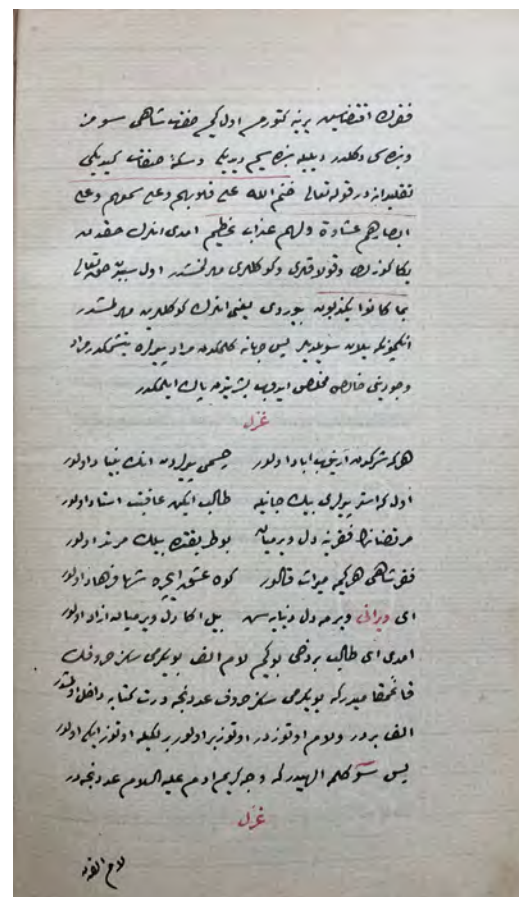 فقرك اقتضاسین برینه كتورمز اول كم حضرت شاهی سومز
و بزه سی دكلدر دیلیله بزم دیدیكی و سكه صفات كیدیكی
تقلیداندر قوله تعالی ختم الله علی قلوبهم وعلی سمعهم وعلی
ابصارهم غشاوة ولهم عذاب عظیم امدی انلرك حقنده
یكا كوزلری و قولاقلری و كوكللری مهرلنمشدر اول سببدن حق تعالی
بما كانوا یكذبون بیوردی یعنی انلرك كوكللرین مهرلمشدر
انكیچونكه یلان سویلدیلر پس جهانه كلمكدن مراد یولره یتشمكدر مراد
وجودینی خالص مخلص ایدوب بشریتدن پاك ایلمكدر
غزل
هر كه شركدن آریلوب اباد اولور جسمی یولدن انك بنیاد اولور
اول كه استر یولری بیك جانیله طالب ایكن عاقبت استاد اولور
مرتضانك فقرینه دل ویرمیان بو طریقتده بیلك مرتد اولور
فقر شاهی هر كیمه میراث قالور كوه عشق ایچره شها فرهاد اولور
ای ویرانی ویرمه دل دنیایه سن بیل اكا دل ویرمیان ازاد اولور
امدی ای طالب بر دخی بو كیم لام الف بو یكرمی سكز حروفك
قائممقامیدر كه بو یكرمی سكز حروف عددنجه درت كتابه داخل اولمشدر
الف بردر و لام اوتوزدر اوتوز بر اولور بر نقطه ایله اوتوز ایكی اولور
پس سی و كلمه الهیدر كه وجه كریم ادم علیه السلام عددنجه در
غزل
لام الفدن